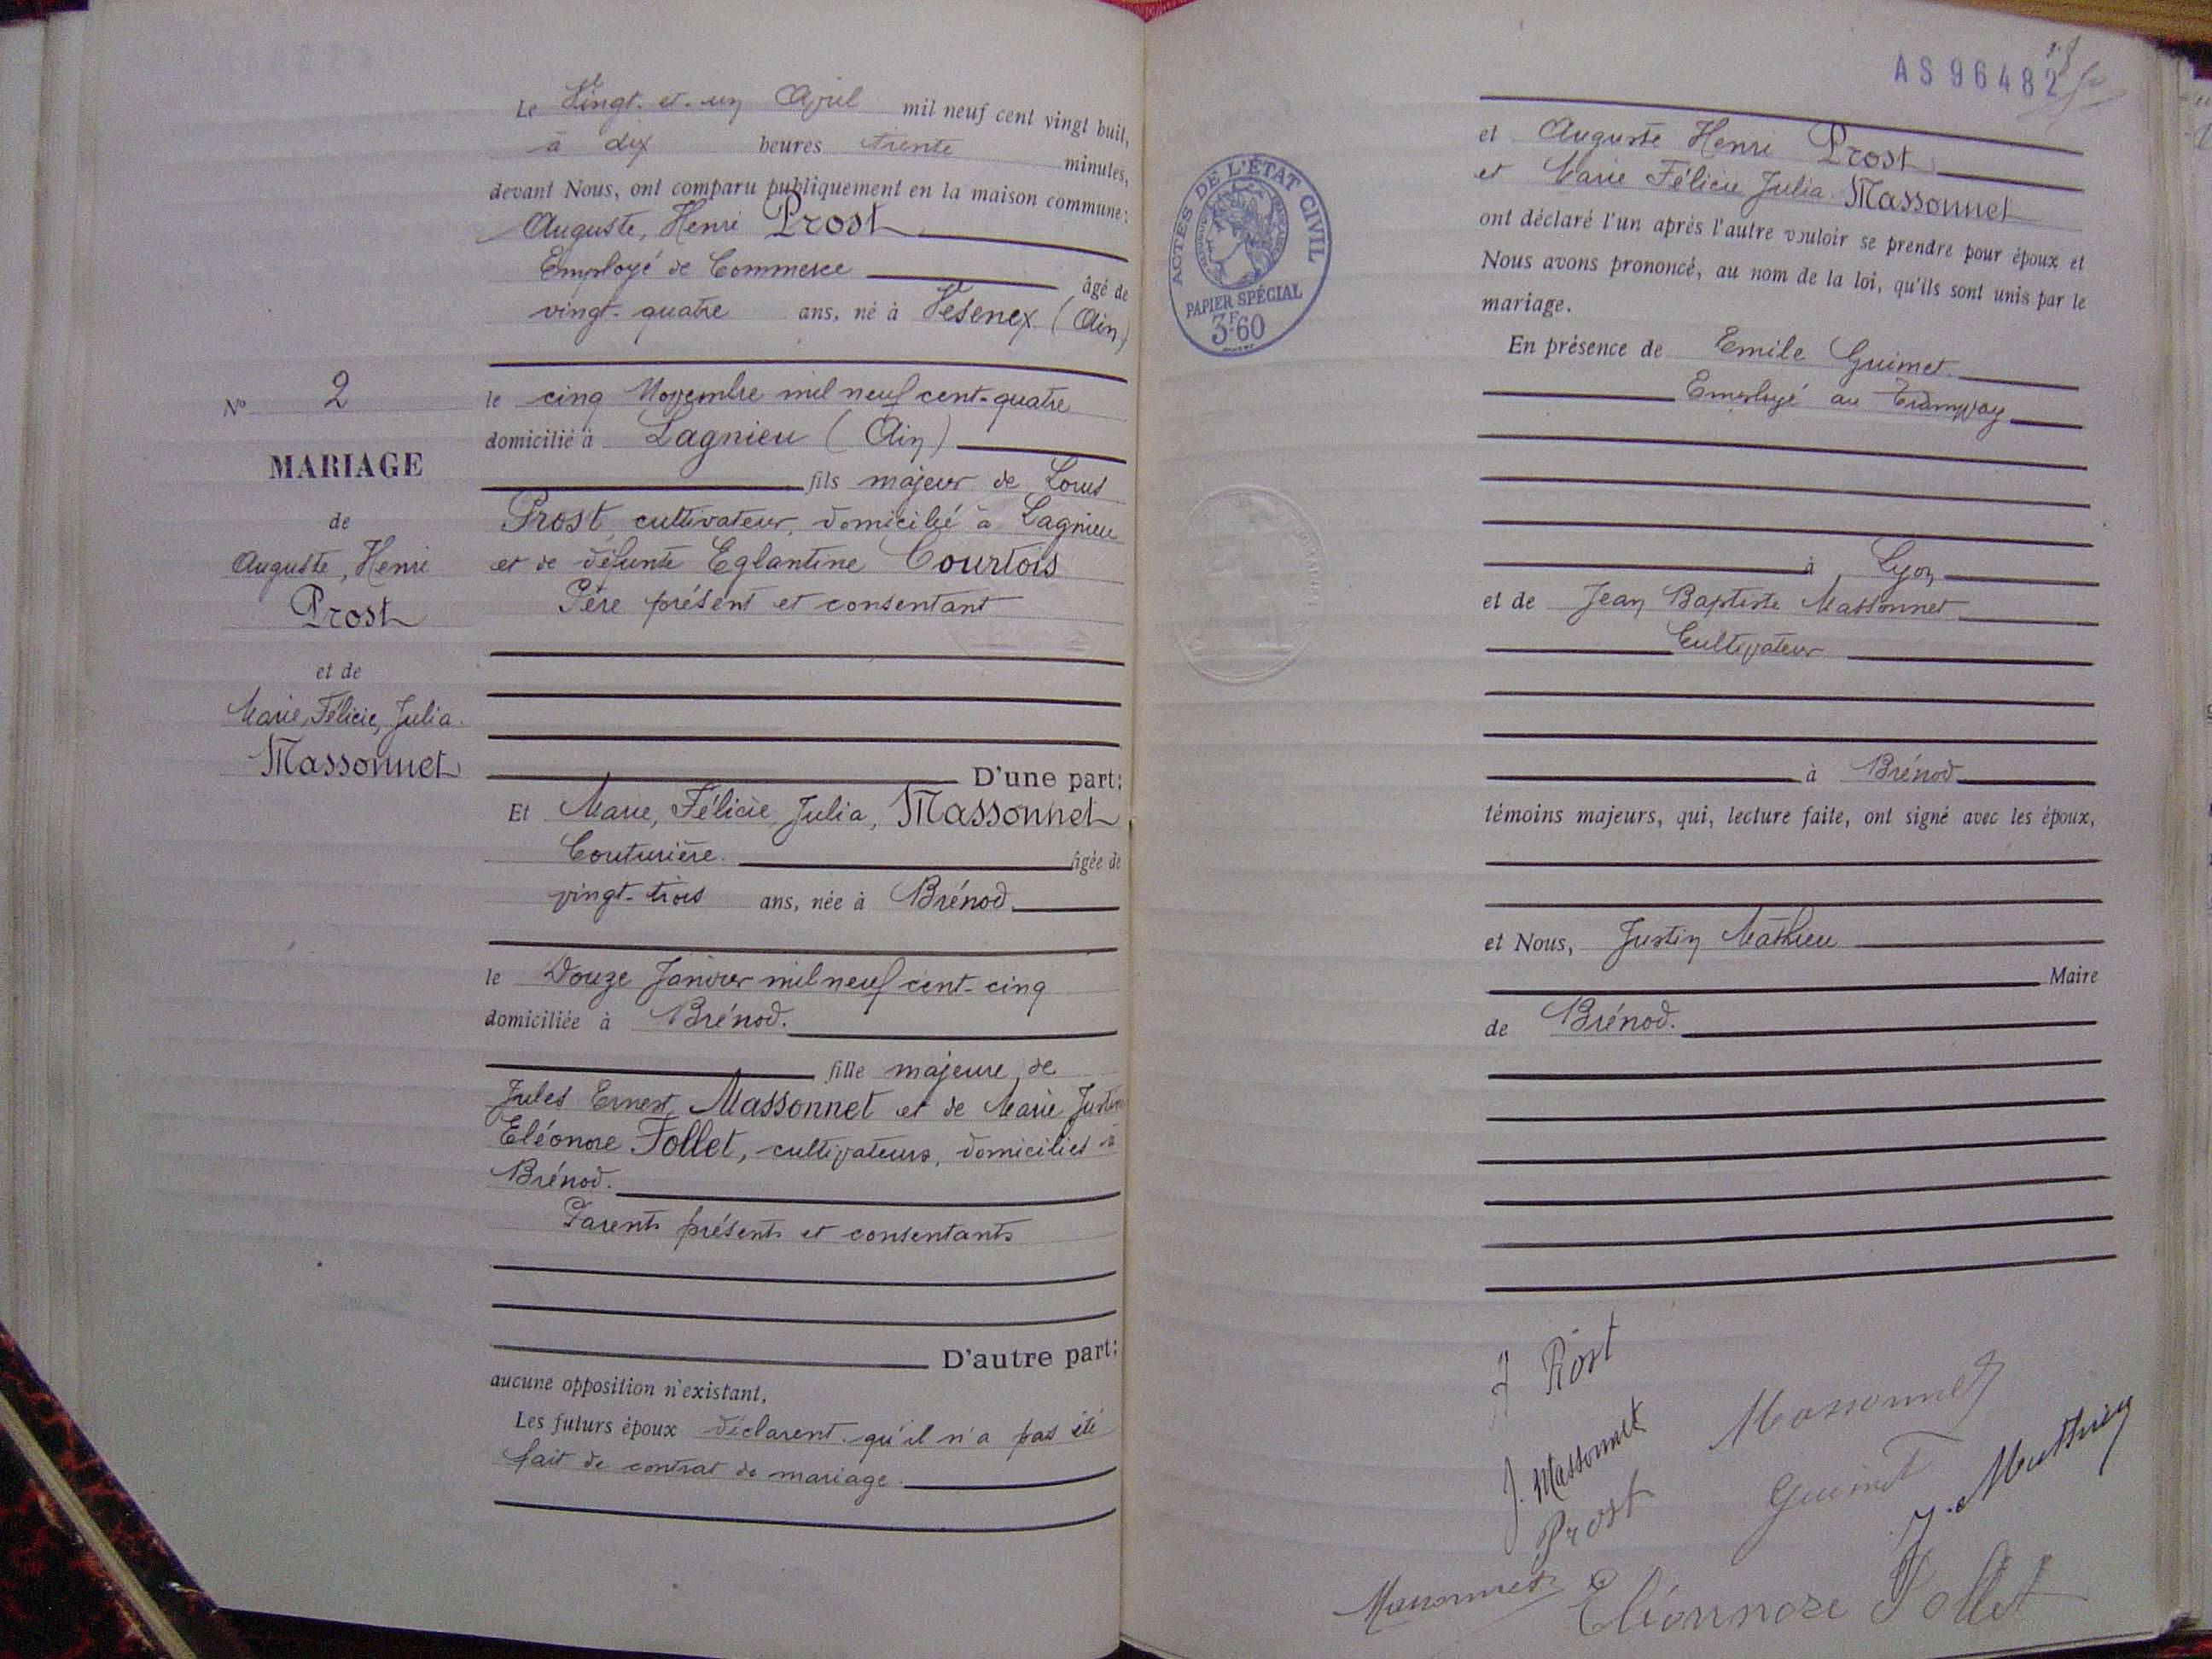 Le Vingt-et-un Avril mil neuf cent vingt huit,
à dix heures trente minutes,
devant Nous, ont comparu publiquement en la maison commune:
Auguste, Henri Prost
Employé de Commerce âgé de
vingt-quatre ans, né à Vesenex (Ain)
le cinq Novembre mil neuf cent-quatre
domicilié à Lagnieu (Ain)
fils majeur de Louis
Prost, cultivateur, domicilié à Lagnieu
et de défunte Eglantine Courtois
Père présent et consentant
D'une part:
Et Marie, Félicie, Julia, Massonnet
Couturière. âgée de
vingt-trois ans, née à Brénod
le Douze Janvier mil neuf cent-cinq
domiciliée à Brénod.
fille majeure de
Jules Ernest Massonnet et de Marie Justine
Eléonore Follet, cultivateurs, domiciliés à
Brénod.
Parents présents et consentants
D'autre part:
aucune opposition n'existant,
Les futurs époux déclarent qu'il n'a pas été
fait de contrat de mariage.
No 2
MARIAGE
de
Auguste, Henri
Prost
et de
Marie, Félicie, Julia.
Massonnet
AS96482
et Auguste Henri Prost
et Marie Félicie Julia Massonnet
ont déclaré l'un après l'autre vouloir se prendre pour époux et
Nous avons prononcé, au nom de la loi, qu'ils sont unis par le
mariage.
En présence de Emile Guimet
Employé au Tramway
à Lyon
et de Jean Baptiste Massonnet
Cultivateur
à Brénod
témoins majeurs, qui, lecture faite, ont signé avec les époux,
et Nous, Justin Mathieu
Maire
de Brénod.
ACTES DE L'ÉTAT CIVIL
RÉPUBLIQUE FRANÇAISE
PAPIER SPÉCIAL
3F60
Prost
J. Massonnet
Massonnet
Prost
Guimet
J. Mathieu
Massonnet
Eléonnore Follet